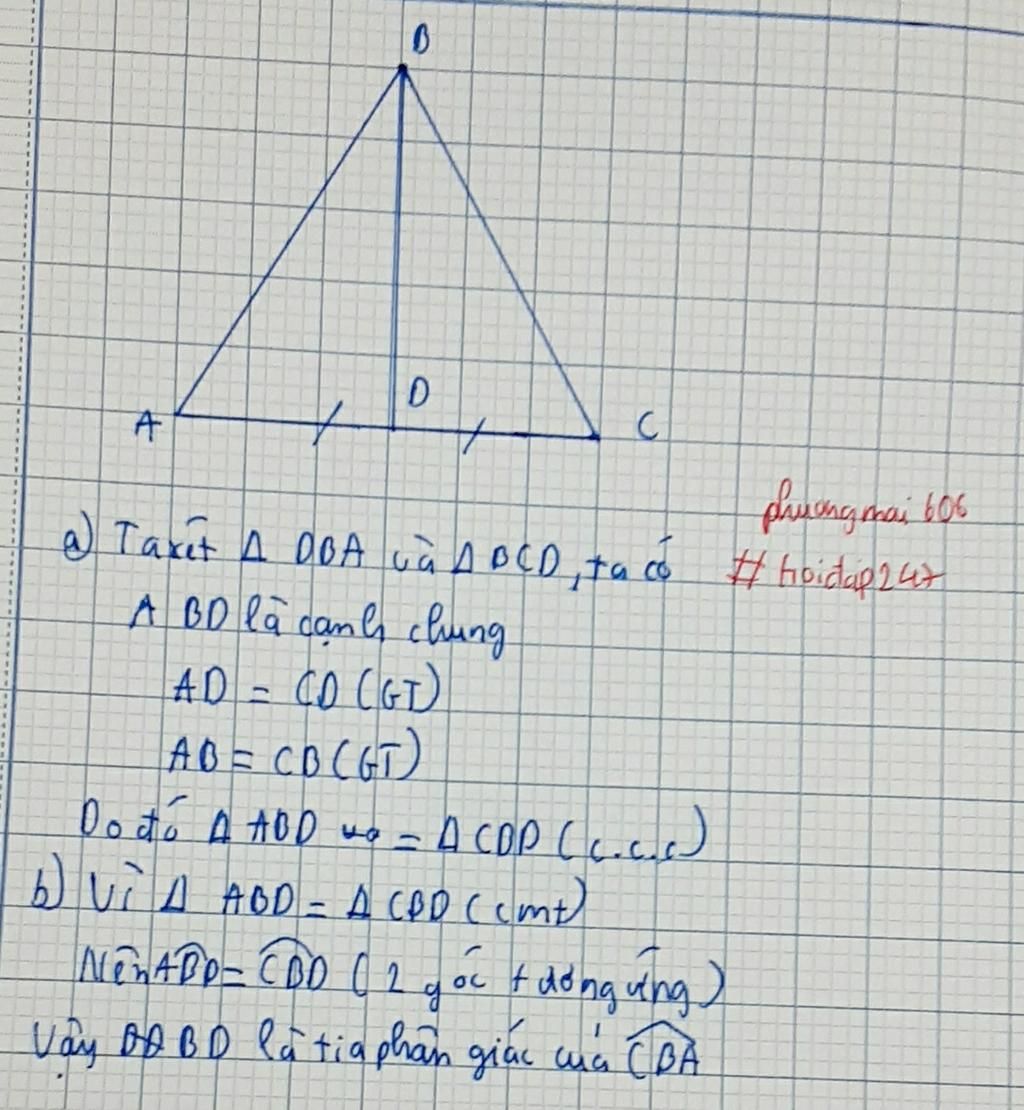 B
D
A
C
phuongmai 606
# hoidap247
a) Ta xét Δ DBA và Δ BCD, ta có
BD là cạnh chung
AD = CD (GT)
AB = CB (GT)
Do đó Δ ABD = Δ CBD (c.c.c)
b) Vì Δ ABD = Δ CBD (cmt)
Nên ABD = CBD (2 góc tương ứng)
Vậy BD là tia phân giác của CBA